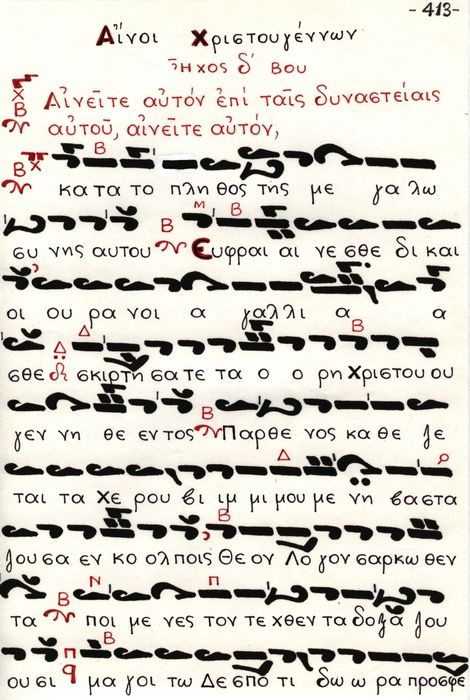 -413-
Αἴνοι Χριστουγέννων
Ἦχος δ´ Βου
Αἰνεῖτε αὐτόν ἐπί ταῖς δυναστείαις
αὐτοῦ, αἰνεῖτε αὐτόν,
κα τα το πλη θος της με γα λω
συ νης αυτου Ευφραι αι νε σθε δι και
οι ου ρα νοι α γαλλι α α
σθε σκιρτη σα τε τα ο ο ρη Χριστου ου
γεν νη θε εν τος Παρθε νος κα θε ζε
ται τα Χε ρου βι ιμ μι μου με νη βαστα
ζου σα εν κο ολποις Θε ον Λο γον σαρκω θεν
τα ποι με νες τον τε χθεν τα δοξα ζου
ου σι μα γοι τω Δε σπο τι δω ω ρα προσφε